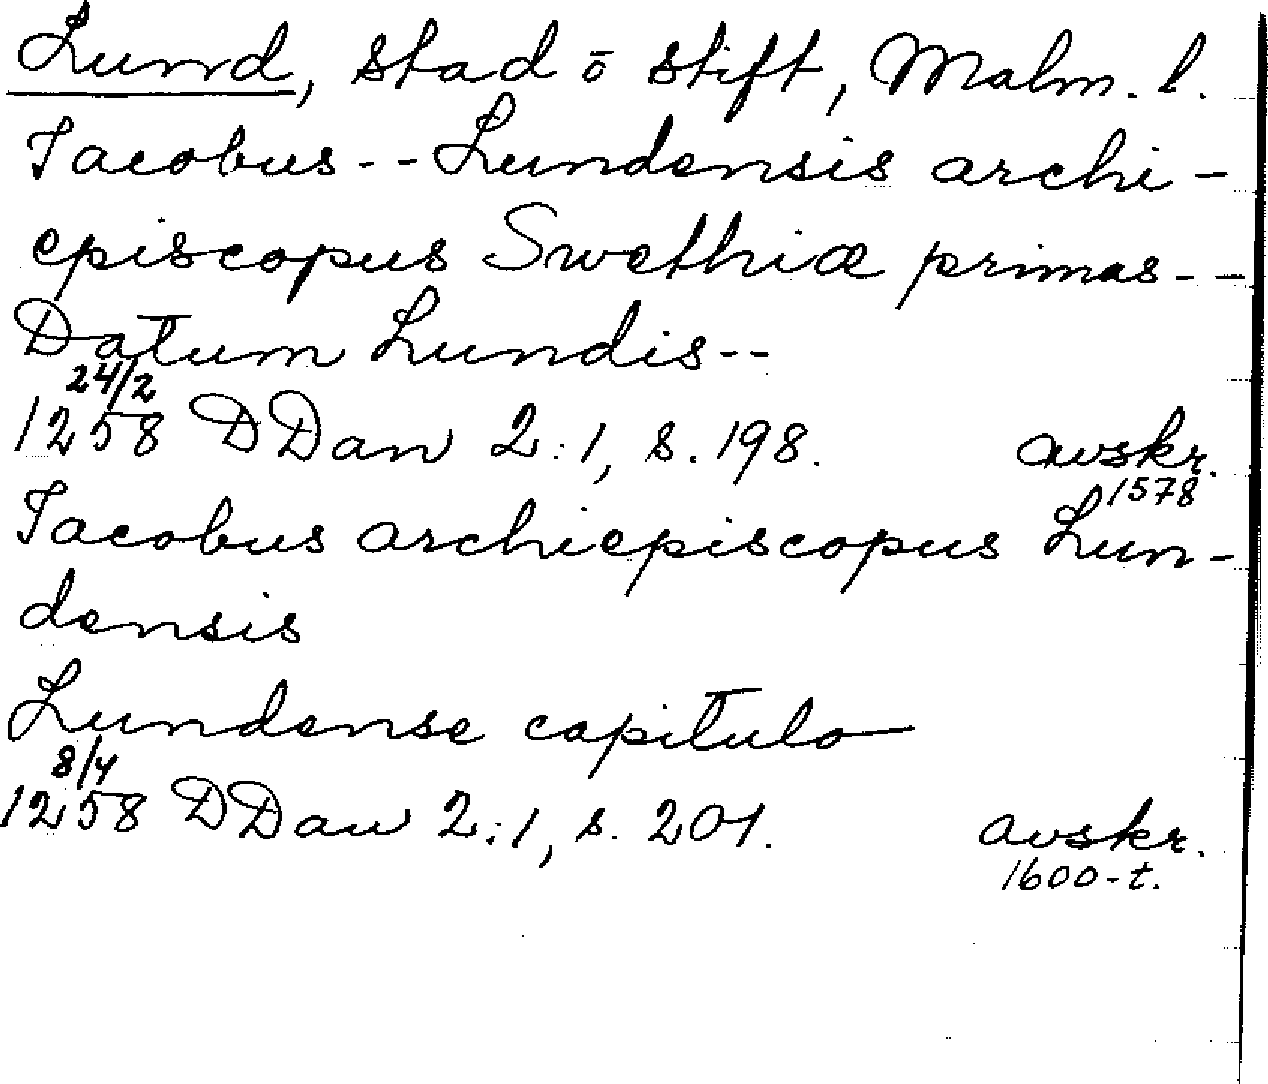 Lund, stad ō stift, Malm. l.
Jacobus -- Lundensis archi-
episcopus Swethiæ primas --
Datum Lundis --
24/2
1258 DDan 2:1, s. 198. avskr.
1578
Jacobus archiepiscopus Lun-
densis
Lundense capitulo
8/4
1258 DDan 2:1, s. 201. avskr.
1600-t.